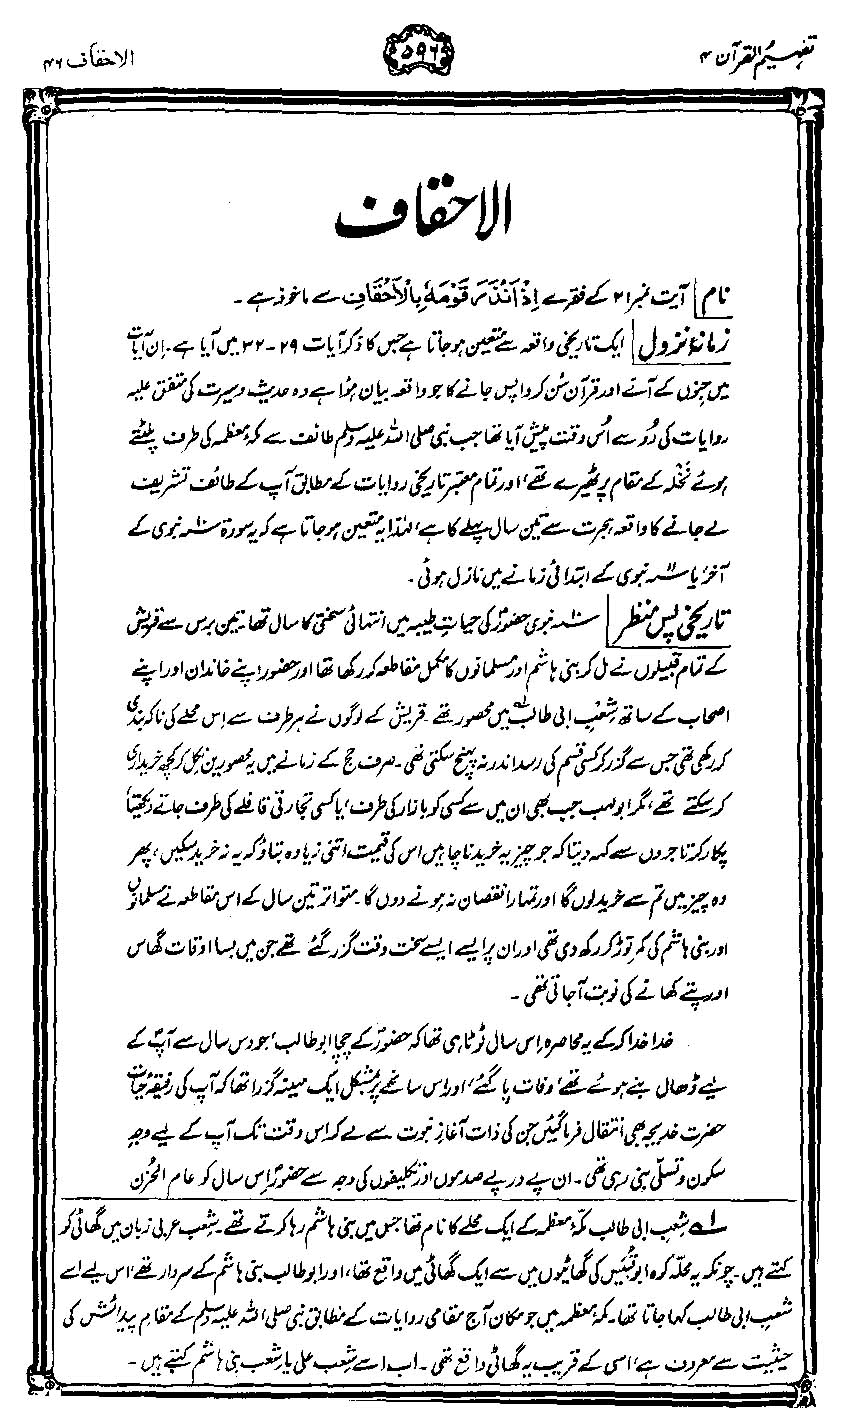 تفہیم القرآن ۴
۵۹۶
الاحقاف ۴۶
الاحقاف
نام آیت نمبر ۲۱ کے فقرے اِذْ اَنْذَرَ قَوْمَهٗ بِالْاَحْقَافِ سے ماخوذ ہے۔
زمانۂ نزول ایک تاریخی واقعہ سے متعین ہو جاتا ہے جس کا ذکر آیات ۲۹-۳۲ میں آیا ہے۔ اِن آیات
میں جِنوں کے آنے اور قرآن سُن کر واپس جانے کا جو واقعہ بیان ہُوا ہے وہ حدیث و سیرت کی متفق علیہ
روایات کی رُو سے اُس وقت پیش آیا تھا جب نبی صلی اللہ علیہ وسلم طائف سے مکۂ معظمہ کی طرف پلٹتے
ہوئے نَخْلہ کے مقام پر ٹھیرے تھے، اور تمام معتبر تاریخی روایات کے مطابق آپ کے طائف تشریف
لے جانے کا واقعہ ہجرت سے تین سال پہلے کا ہے، لہٰذا یہ متعین ہو جاتا ہے کہ یہ سورۃ ۱۰؁ نبوی کے
آخر، یا ۱۱؁ نبوی کے ابتدائی زمانے میں نازل ہوئی۔
تاریخی پس منظر ۱۰؁ نبوی حضورؐ کی حیاتِ طیبہ میں انتہائی سختی کا سال تھا۔ تین برس سے قریش
کے تمام قبیلوں نے مل کر بنی ہاشم اور مسلمانوں کا مکمل مقاطعہ کر رکھا تھا اور حضورؐ اپنے خاندان اور اپنے
اصحاب کے ساتھ شِعْبِ ابی طالب؎۱ میں محصور تھے۔ قریش کے لوگوں نے ہر طرف سے اس محلے کی ناکہ بندی
کر رکھی تھی جس سے گزر کر کسی قسم کی رسد اندر نہ پہنچ سکتی تھی۔ صرف حج کے زمانے میں یہ محصورین نکل کر کچھ خریداری
کر سکتے تھے، مگر ابو لہب جب بھی ان میں سے کسی کو بازار کی طرف، یا کسی تجارتی قافلے کی طرف جاتے دیکھتا
پکار کر تاجروں سے کہہ دیتا کہ جو چیز یہ خریدنا چاہیں اس کی قیمت اتنی زیادہ بتاؤ کہ یہ نہ خرید سکیں، پھر
وہ چیز میں تم سے خرید لوں گا اور تمہارا نقصان نہ ہونے دوں گا۔ متواتر تین سال کے اس مقاطعہ نے مسلمانوں
اور بنی ہاشم کی کمر توڑ کر رکھ دی تھی اور ان پر ایسے ایسے سخت وقت گزر گئے تھے جن میں بسا اوقات گھاس
اور پتے کھانے کی نوبت آجاتی تھی۔
خدا خدا کر کے یہ محاصرہ اس سال ٹوٹا ہی تھا کہ حضورؐ کے چچا ابو طالب، جو دس سال سے آپؐ کے
لیے ڈھال بنے ہوئے تھے، وفات پا گئے، اور اس سانحے پر بمشکل ایک مہینہ گزرا تھا کہ آپ کی رفیقۂ حیات
حضرت خدیجہ بھی انتقال فرما گئیں جن کی ذات آغازِ نبوت سے لے کر اس وقت تک آپ کے لیے وجہِ
سکون و تسلّی بنی رہی تھی۔ ان پے در پے صدموں اور تکلیفوں کی وجہ سے حضورؐ اِس سال کو عام الحُزن
؎۱ شِعْبِ ابی طالب مکۂ معظمہ کے ایک محلے کا نام تھا جس میں بنی ہاشم رہا کرتے تھے۔ شِعب عربی زبان میں گھاٹی کو
کہتے ہیں۔ چونکہ یہ محلّہ کوہ ابو قُبَیس کی گھاٹیوں میں سے ایک گھاٹی میں واقع تھا، اور ابو طالب بنی ہاشم کے سردار تھے، اس لیے اسے
شعبِ ابی طالب کہا جاتا تھا۔ مکۂ معظمہ میں جو مکان آج مقامی روایات کے مطابق نبی صلی اللہ علیہ وسلم کے مقام پیدائش کی
حیثیت سے معروف ہے، اسی کے قریب یہ گھاٹی واقع تھی۔ اب اسے شعبِ علی یا شعبِ بنی ہاشم کہتے ہیں۔